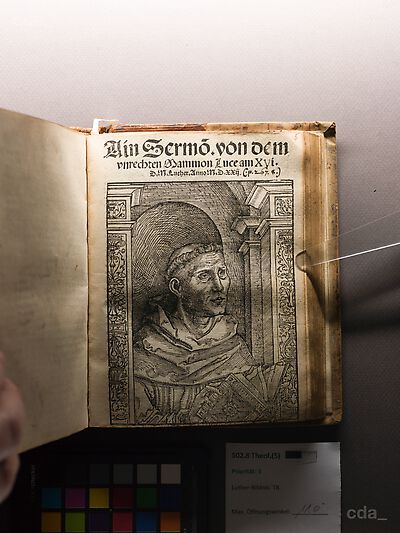 Ain Sermō. von dem
vnrechten Mammon Luce am Xvi.
D.M.Luther. Anno M.D.XXij.
502.8 Theol.(5)
Priorität: 8
Luther-Bildnis: TB
Max. Öffnungswinkel:
cda_